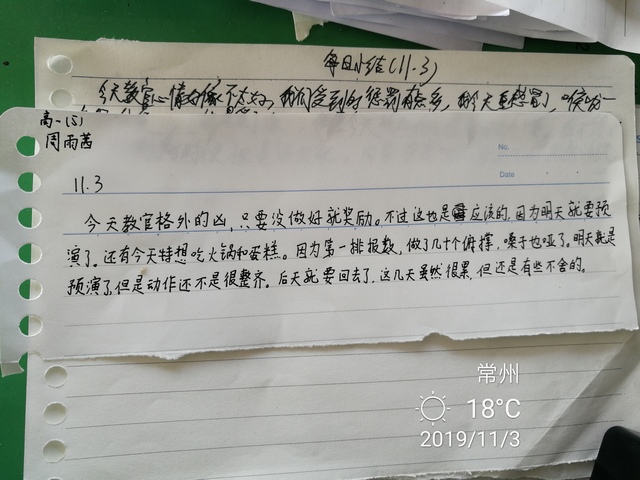 每日小结(11.3)
今天教官心情好像不太好，我们受到的惩罚有点多，我今天重感冒了，喉咙一
高一(5)
周雨茜
No.
Date
11.3
今天教官格外的凶，只要没做好就奖励。不过这也是应该的，因为明天就要预
演了。还有今天特想吃火锅和蛋糕。因为第一排报数，做了几十个俯撑，嗓子也哑了。明天就是
预演了但是动作还不是很整齐。后天就要回去了，这几天虽然很累，但还是有些不舍的。
常州
18°C
2019/11/3